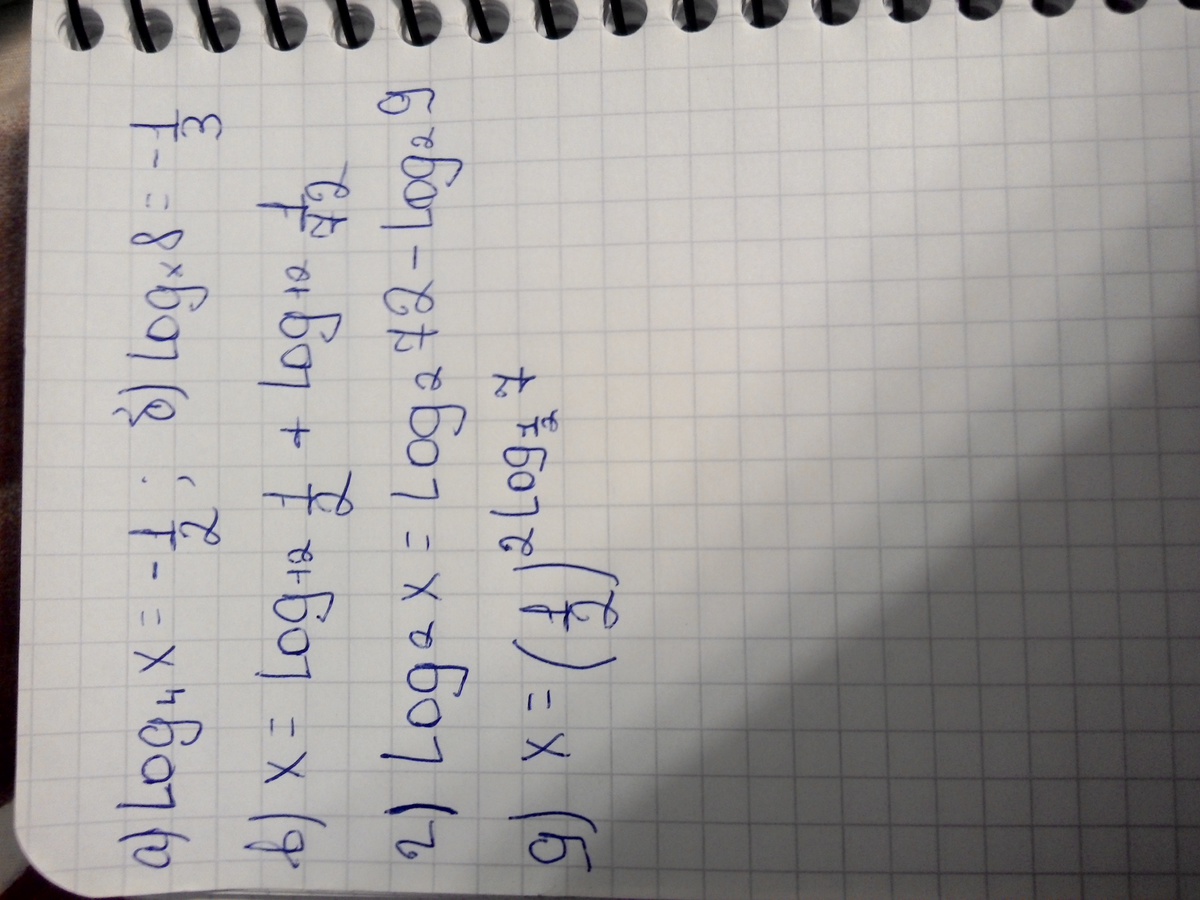 а) log₄ x = -1/2; б) logₓ 8 = -1/3
в) x = log₁₂ 1/2 + log₁₂ 1/72
г) log₂ x = log₂ 72 - log₂ 9
д) x = (1/2)^(2 log_(1/2) 7)